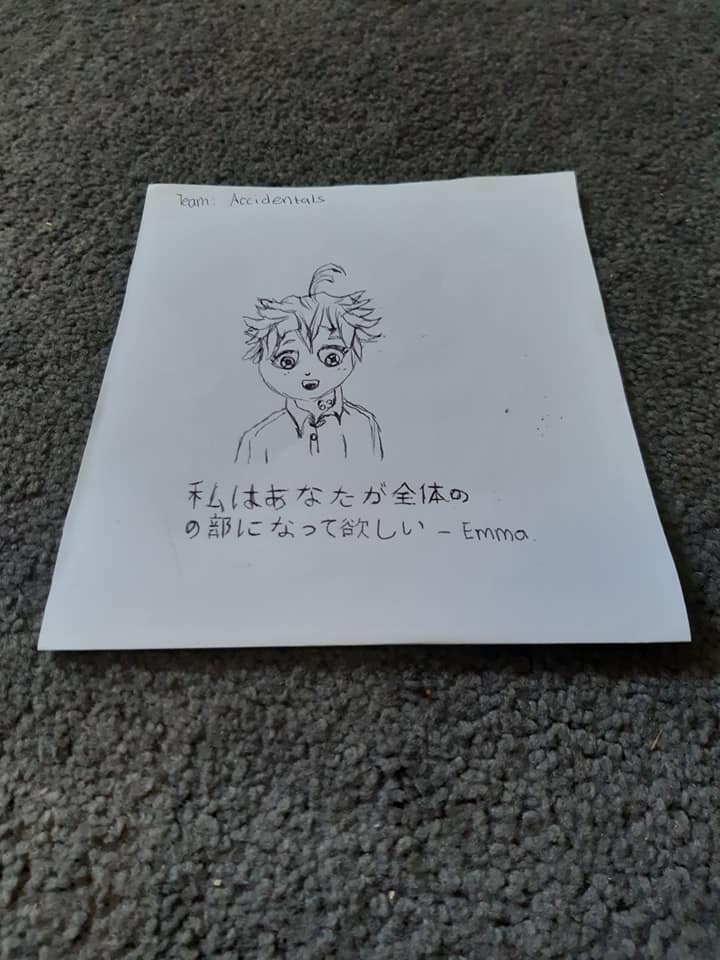 Team: Accidentals
私はあなたが全体の
の部になって欲しい – Emma.